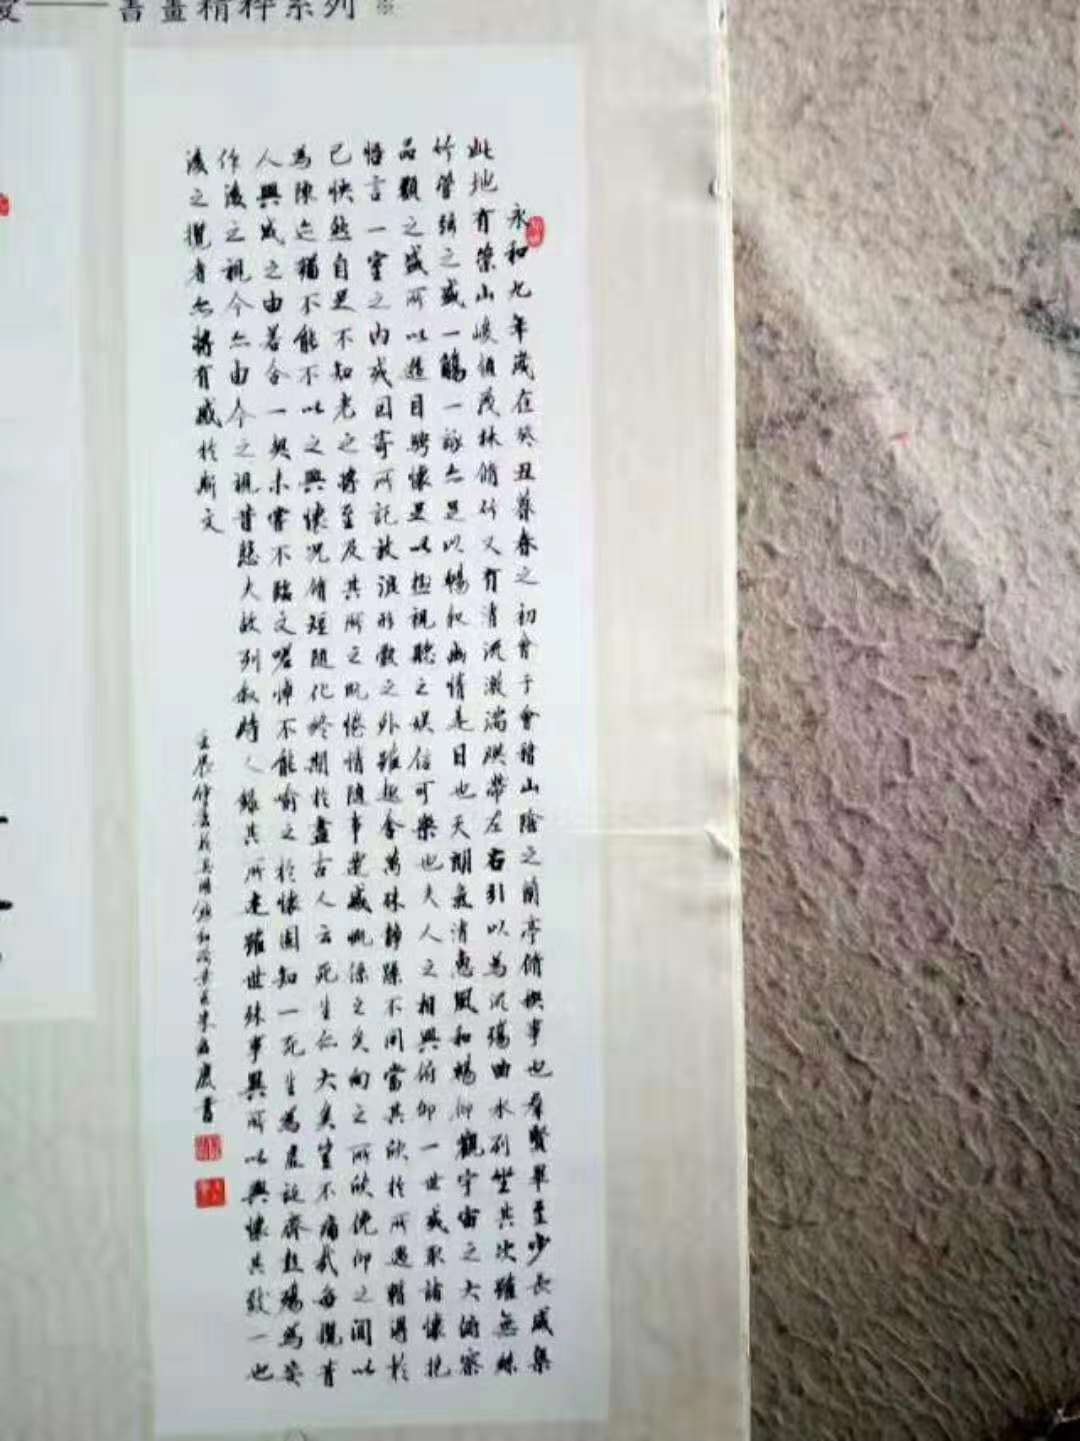 書畫精粹系列
永和九年歲在癸丑暮春之初會于會稽山陰之蘭亭脩禊事也羣賢畢至少長咸集
此地有崇山峻領茂林脩竹又有清流激湍暎帶左右引以為流觴曲水列坐其次雖無絲
竹管弦之盛一觴一詠亦足以暢叙幽情是日也天朗氣清惠風和暢仰觀宇宙之大俯察
品類之盛所以遊目騁懷足以極視聽之娛信可樂也夫人之相與俯仰一世或取諸懷抱
悟言一室之內或因寄所託放浪形骸之外雖趣舍萬殊靜躁不同當其欣於所遇暫得於
己快然自足不知老之將至及其所之既惓情隨事遷感慨係之矣向之所欣俛仰之間以
為陳迹猶不能不以之興懷況脩短隨化終期於盡古人云死生亦大矣豈不痛哉每攬昔
人興感之由若合一契未嘗不臨文嗟悼不能喻之於懷固知一死生為虛誕齊彭殤為妄
作後之視今亦由今之視昔悲夫故列叙時人錄其所述雖世殊事異所以興懷其致一也
後之攬者亦將有感於斯文
壬辰仲 書